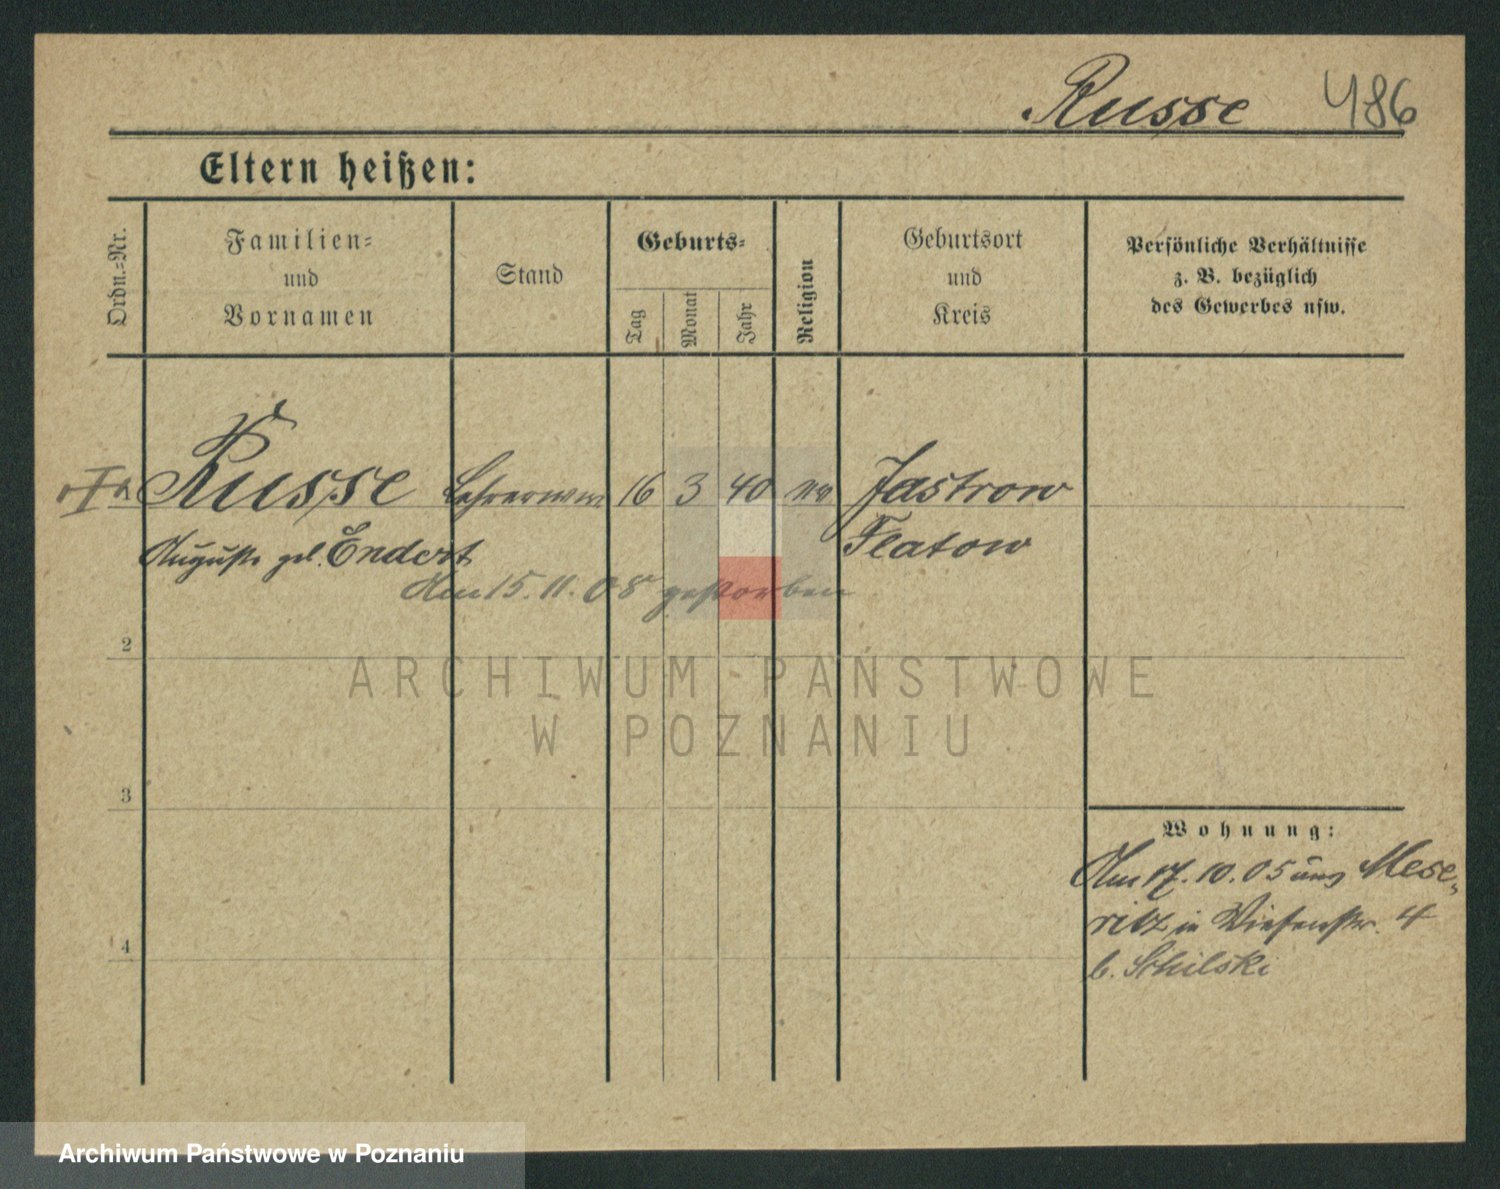 Russe 486
Eltern heißen:
Ordn.=Nr.
Familien=
und
Vornamen
Stand
Geburts=
Tag
Monat
Jahr
Religion
Geburtsort
und
Kreis
Persönliche Verhältnisse
z. B. bezüglich
des Gewerbes usw.
Russe Lehrerwwe. 16 3 40 ev Jastrow
Auguste geb. Endert Flatow
Am 15.11.08 gestorben
2
3
4
Wohnung:
Am 17.10.05 aus Mese-
ritz in Wiesenstr. 4
b. Schilski
ARCHIWUM PAŃSTWOWE
W POZNANIU
Archiwum Państwowe w Poznaniu